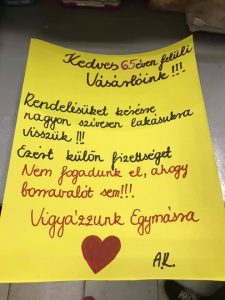 Kedves 65 éven felüli
Vásárlóink !!!
Rendelésüket kérésre
nagyon szívesen lakásukra
Visszük !!!
Ezért külön fizettséget
Nem fogadunk el, ahogy
borravalót sem!!!
Vigyázzunk Egymásra
A.K.